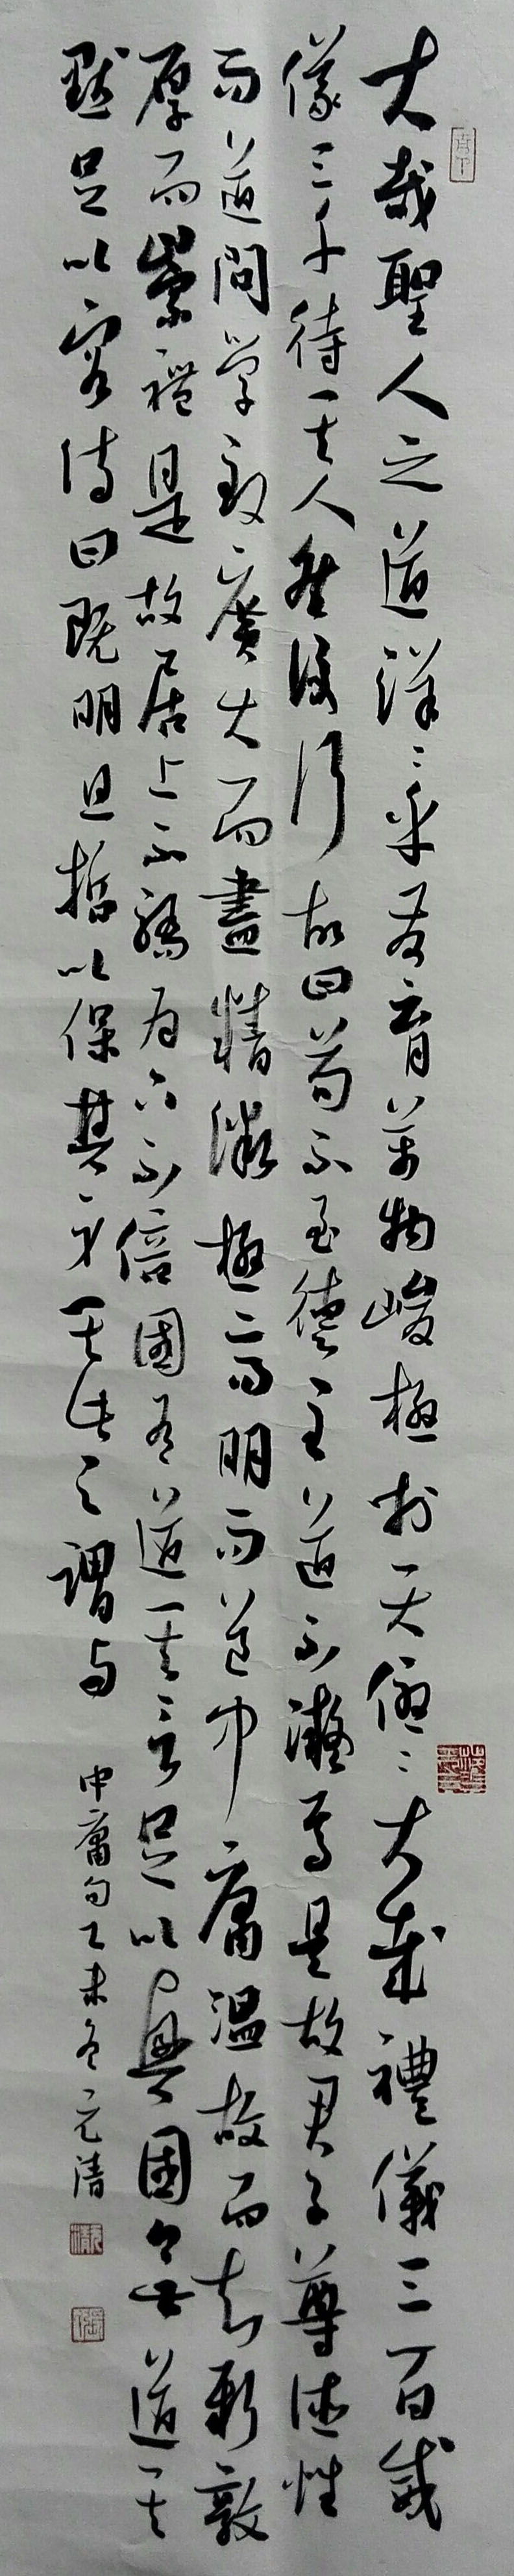 大哉聖人之道洋洋乎發育萬物峻極於天優優大哉禮儀三百威
儀三千待其人然後行故曰苟不至德至道不凝焉是故君子尊德性
而道問學致廣大而盡精微極高明而道中庸溫故而知新敦
厚而崇禮是故居上不驕為下不倍國有道其言足以興國無道其
默足以容詩曰既明且哲以保其身其此之謂與
中庸句乙未冬元清